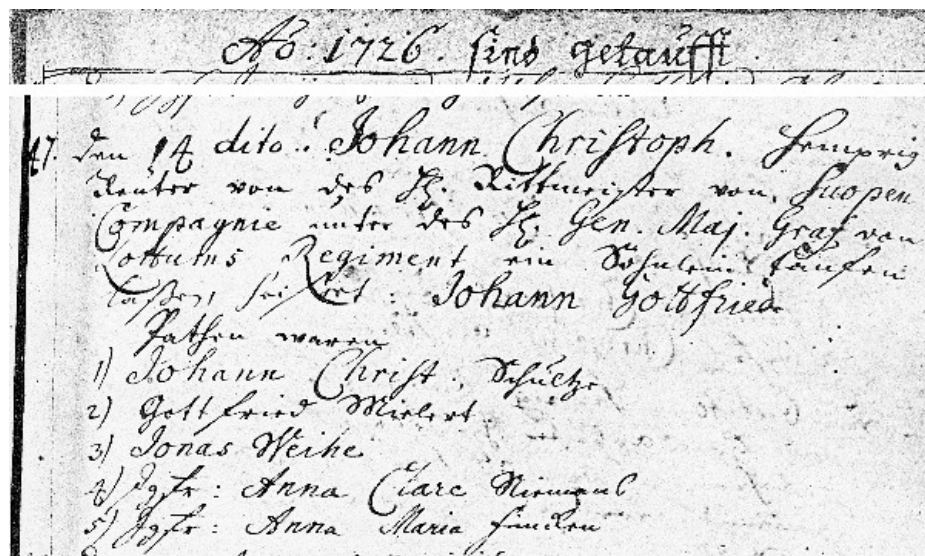 Ao: 1726. sind getaufft
47. den 14 dito: Johann Christoph. Hemprig
Reuter von des H. Rittmeister von
Compagnie unter des H. Gen. Maj. Graf von
Regiment ein Söhnlein tauffen
laßen, heißet: Johann Gottfried
Pathen waren
1) Johann Christ. Schultze
2) Gottfried Mielert
3) Jonas Weihe
4) Jgfr: Anna Clare Niemans
5) Jgfr: Anna Maria